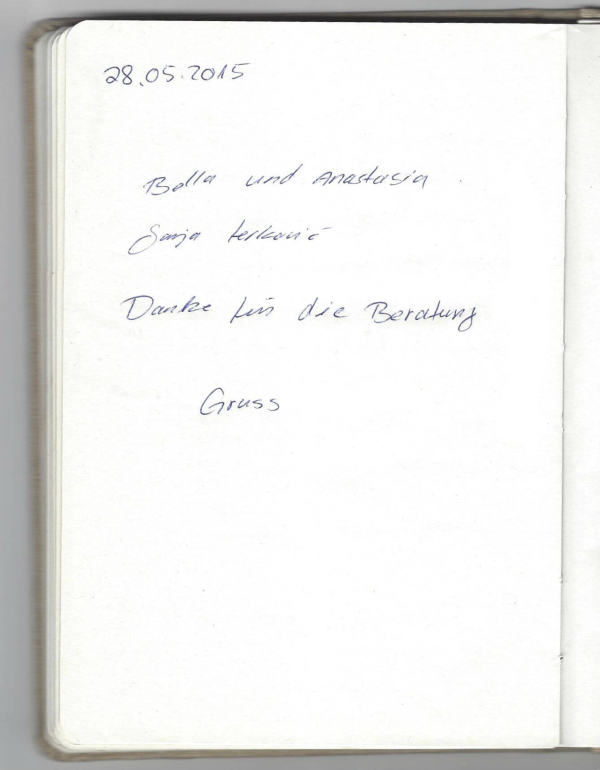 28.05.2015
Bella und Anastasia
Sanja
Danke für die Beratung
Gruss